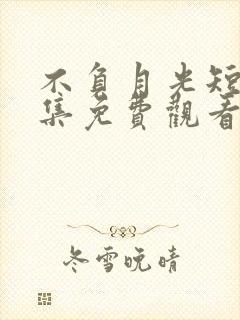 不負月光短
集免費觀看
冬雪晚晴